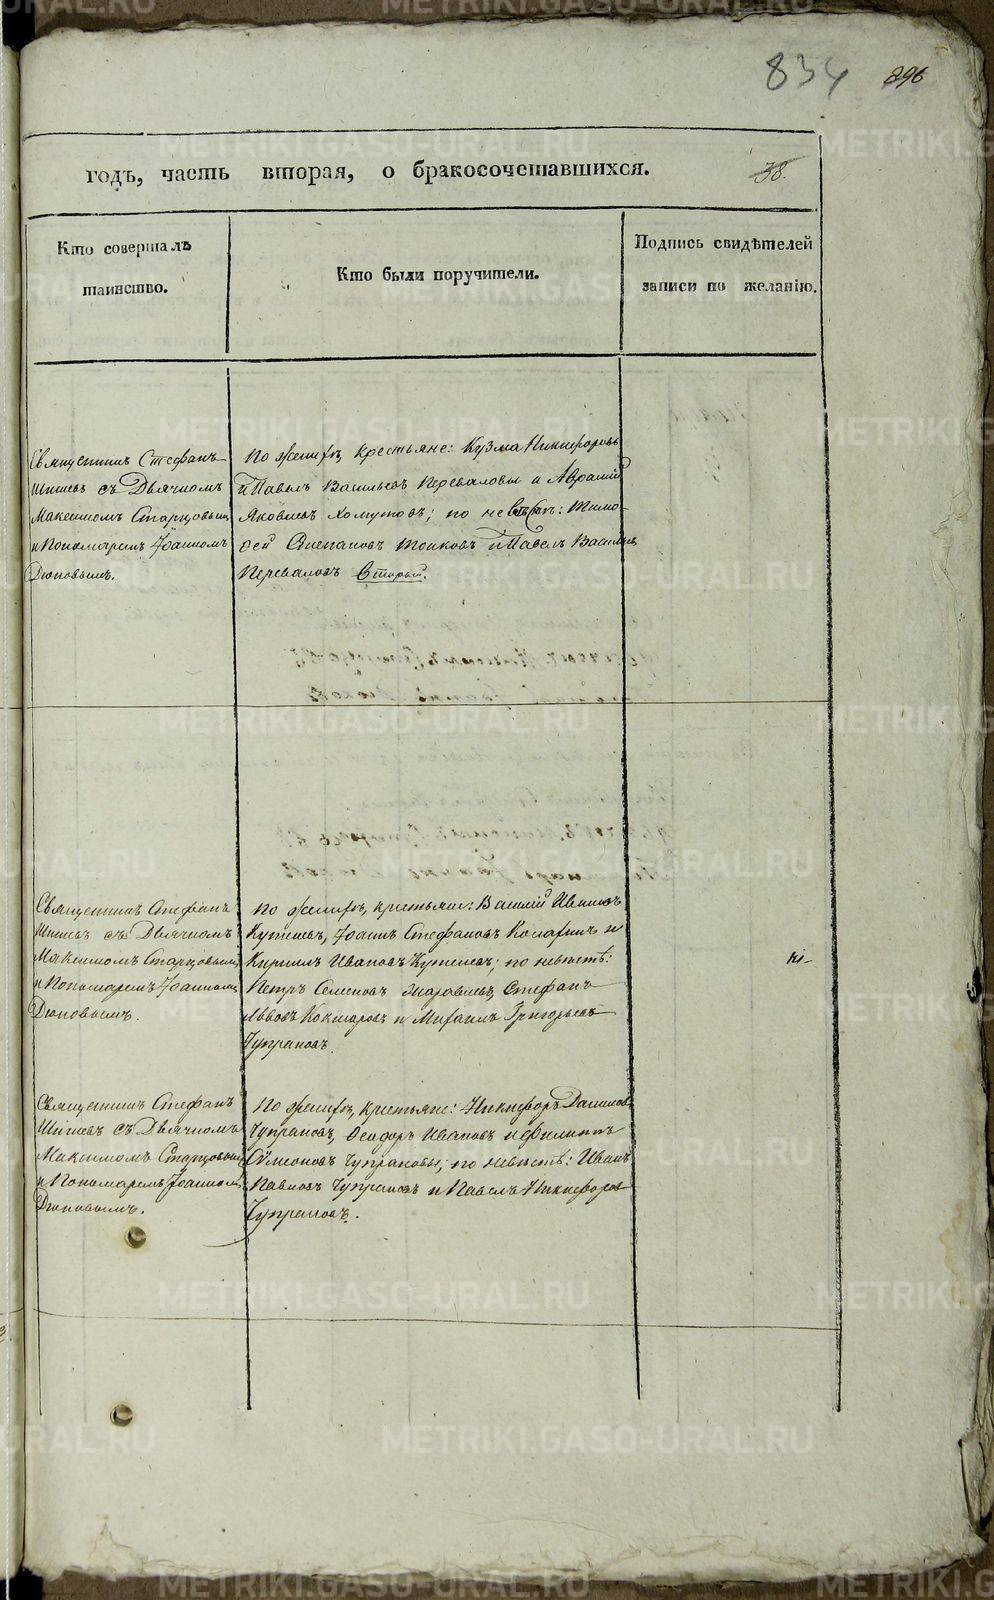 834 896
годъ, часть вторая, о бракосочетавшихся. 38.
Кто совершалъ
таинство.
Кто были поручители.
Подпись свидѣтелей
записи по желанію.
Священникъ Стефанъ
Шишевъ съ Дьячкомъ
Максимомъ Старцовымъ
и Пономаремъ Іоанномъ
Дюповымъ.
По женихѣ, крестьяне: Кузма Никифоровъ
и Павелъ Васильевъ Переваловы и Авраамій
Яковлевъ Хомутовъ; по невѣстѣ: Тимо-
ѳей Степановъ и Павелъ Васильевъ
Переваловъ Вторый.
Священникъ Стефанъ
Шишевъ съ Дьячкомъ
Максимомъ Старцовымъ
и Пономаремъ Іоанномъ
Дюповымъ.
По женихѣ, крестьяне: Василій Ивановъ
Іоаннъ Стефановъ и
Кирилъ Ивановъ; по невѣстѣ:
Петръ Семеновъ Журавлевъ, Стефанъ
Львовъ Кокшаровъ и Михаилъ Григорьевъ
Чупраковъ.
Священникъ Стефанъ
Шишевъ съ Дьячкомъ
Максимомъ Старцовымъ
и Пономаремъ Іоанномъ
Дюповымъ.
По женихѣ, крестьяне: Никифоръ Даниловъ
Чупраковъ, Ѳеодоръ Ивановъ и Филиппъ
Сѵмеоновъ Чупраковы; по невѣстѣ: Иванъ
Павловъ Чупраковъ и Павелъ Никифоровъ
Чупраковъ.
METRIKI.GASO-URAL.RU